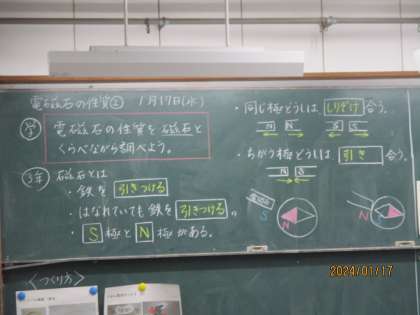 電磁石の性質② 1月17日(水)
学 電磁石の性質を磁石と
くらべながら調べよう。
3年 磁石とは
・鉄を 引きつける
・はなれていても鉄を 引きつける 。
・ S 極と N 極がある。
・同じ極どうしは しりぞけ 合う。
N N S S
・ちがう極どうしは 引き 合う。
N S
S N
〈つくり方〉
2024/01/17